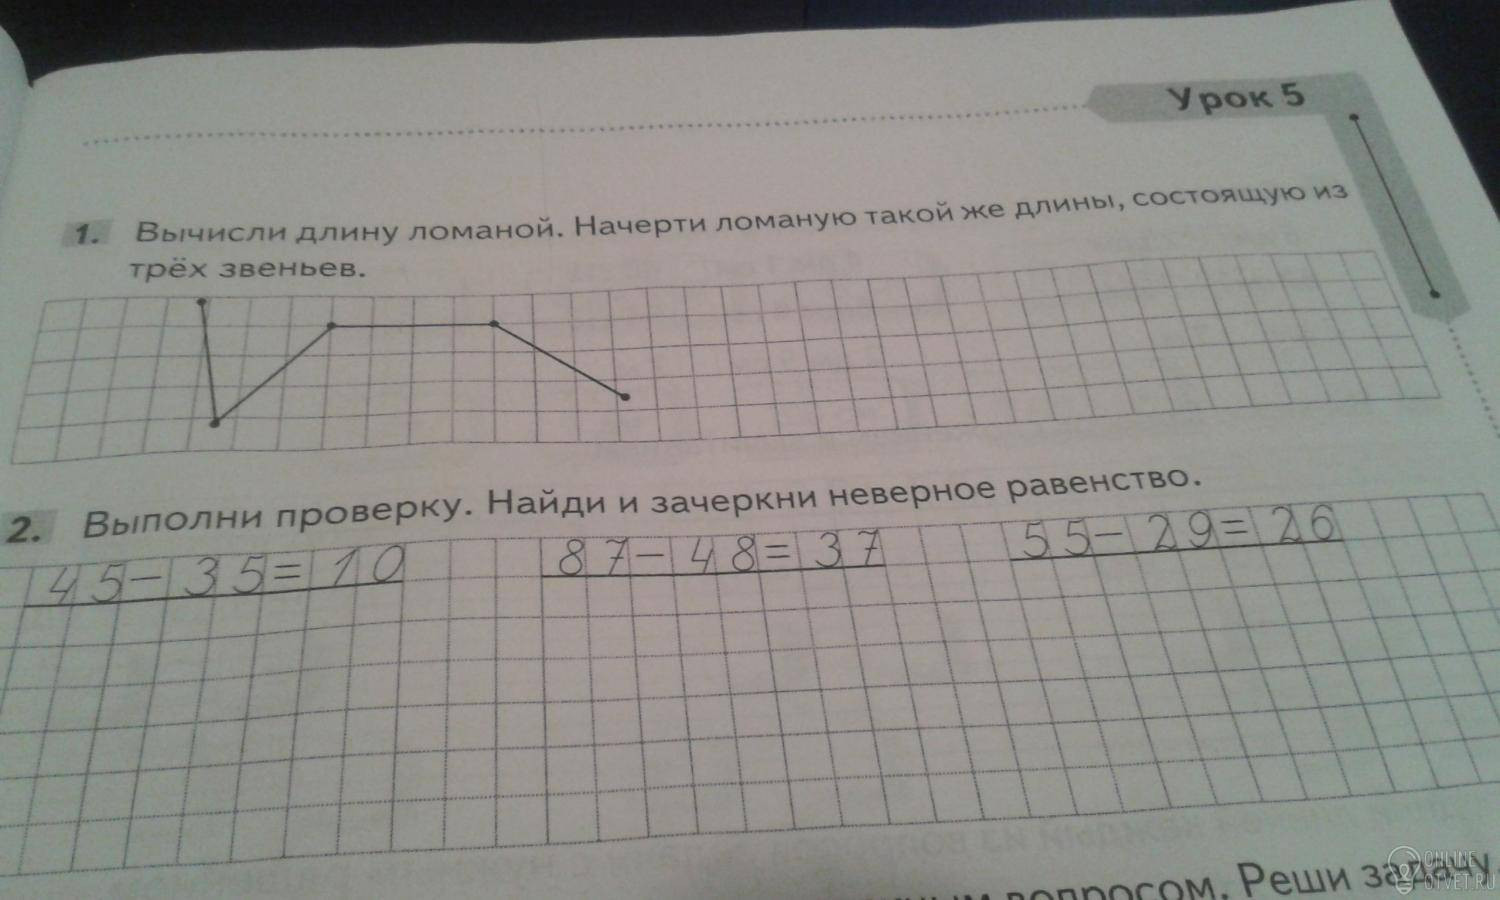 Урок 5
1. Вычисли длину ломаной. Начерти ломаную такой же длины, состоящую из
трёх звеньев.
2. Выполни проверку. Найди и зачеркни неверное равенство.
45-35=10 87-48=37 55-29=26
вопросом. Реши задачу
ONLINE
OTVET.RU